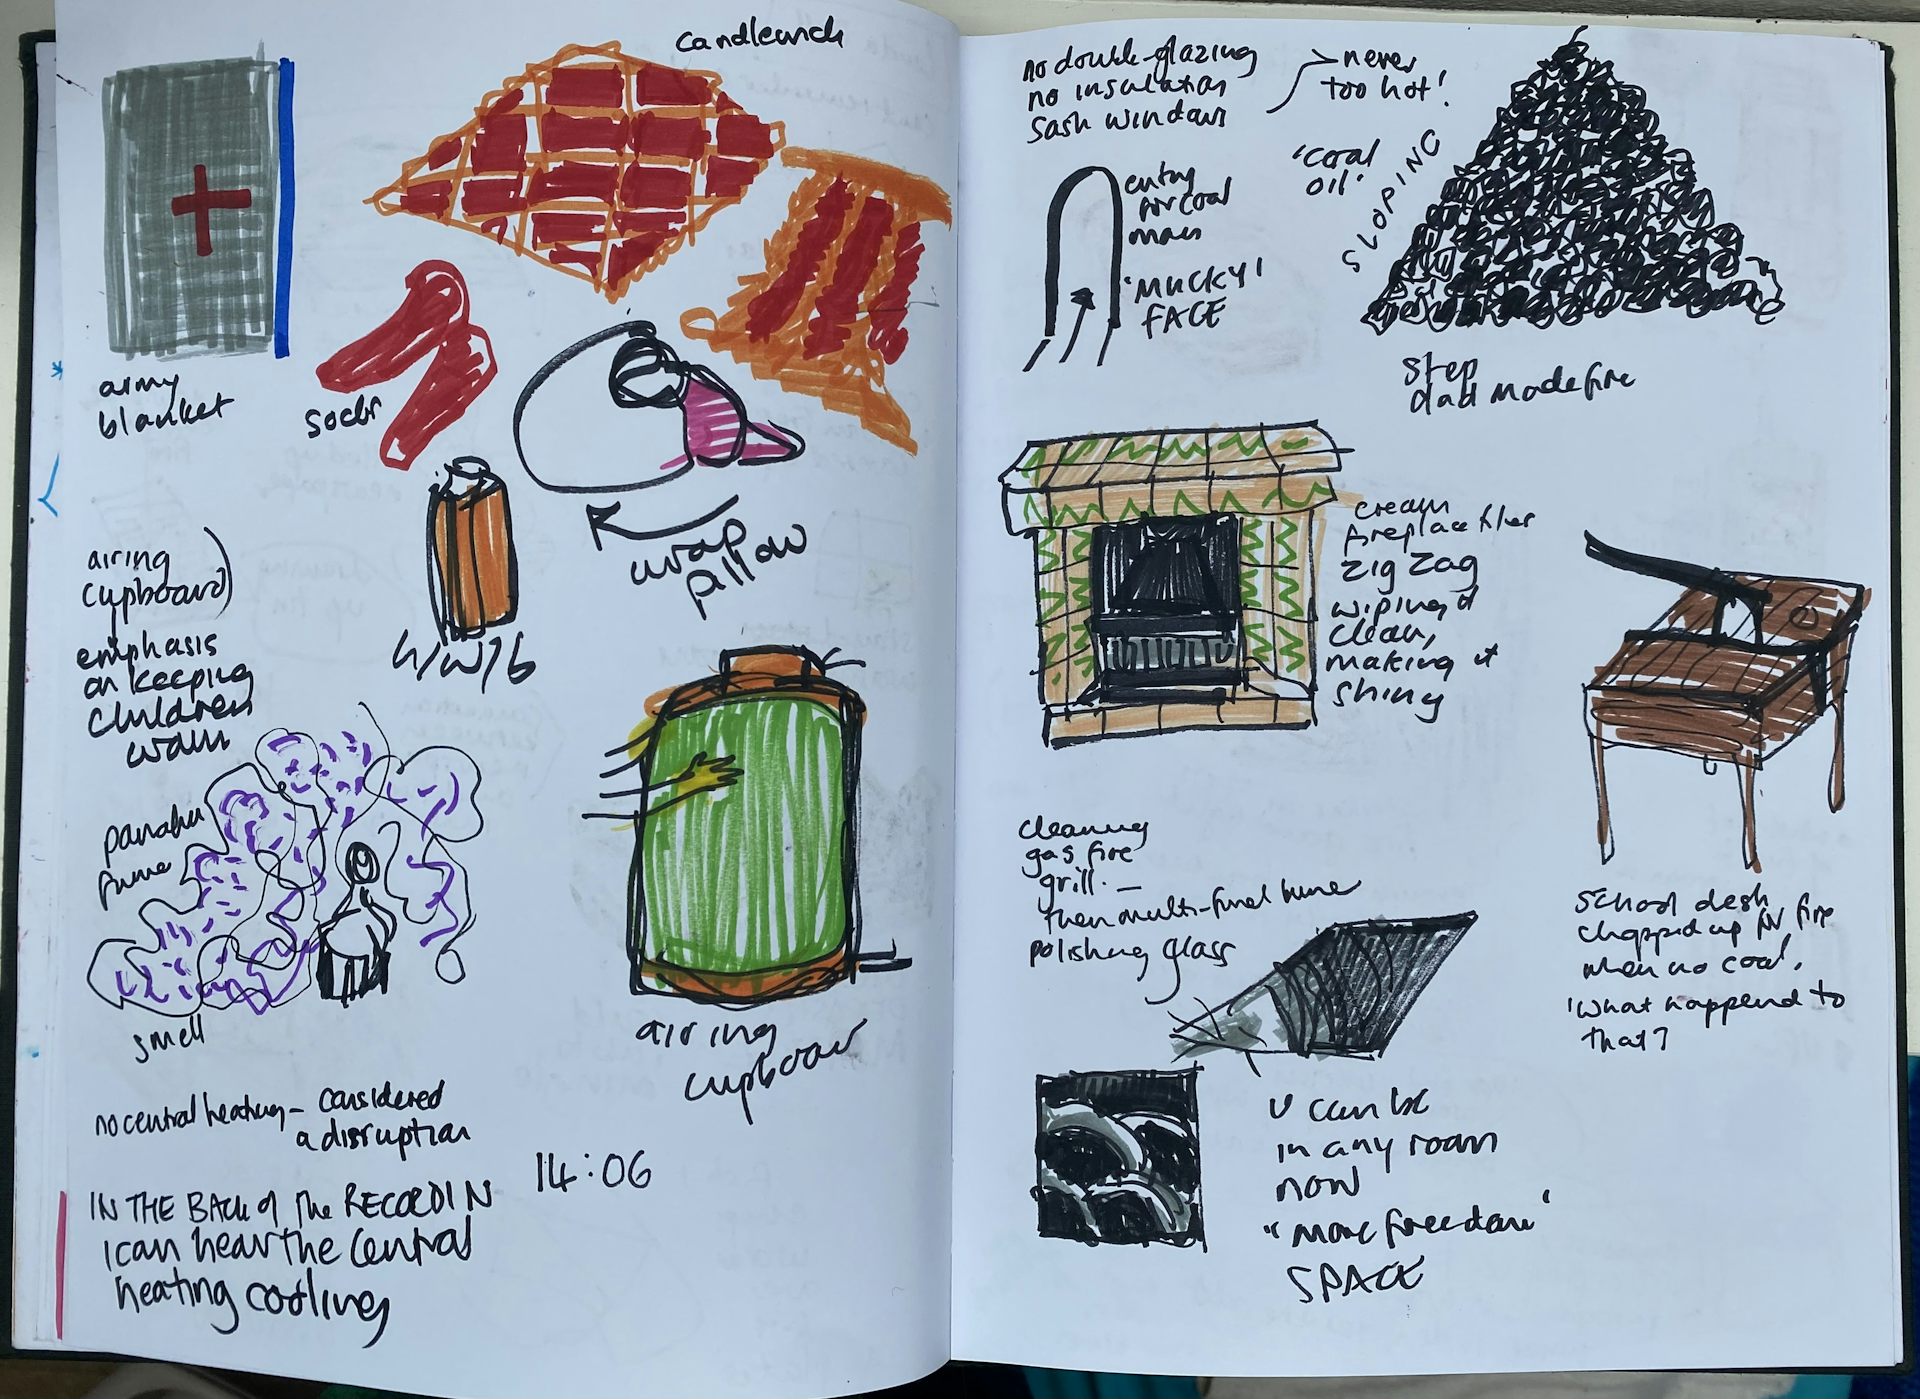 candlewick
army
blanket
socks
wrap
pillow
h/w/b
airing
cupboard
emphasis
on keeping
children
warm
paraffin
fume
smell
airing
cupboard
no central heating – considered
a disruption
14:06
IN THE BACK of the RECORDIN
I can hear the central
heating cooling
no double-glazing
no insulation
sash windows
never
too hot!
'coal
oil'
SLOPING
entry
for coal
man
'MUCKY'
FACE
step
dad made fire
cream
fireplace tiles
zig zag
wiping it
clean,
making it
shiny
cleaning
gas fire
grill. –
then multi-fuel
polishing glass
School desk
chopped up for fire
when no coal.
'what happend to
that?
U can be
in any room
now
"more freedom"
SPACE